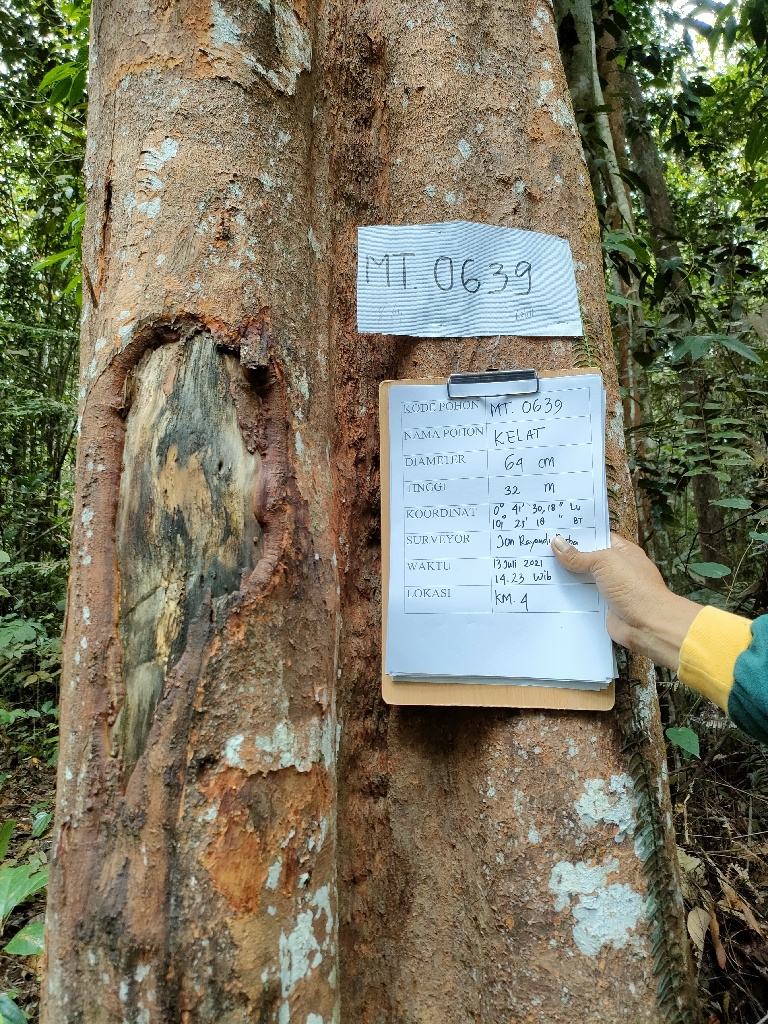 MT. 0639
KODE POHON MT. 0639
NAMA POHON KELAT
DIAMETER 64 cm
TINGGI 32 m
KOORDINAT 0° 41' 30,18" LU
101° 21' 18 " BT
SURVEYOR Jon
WAKTU 13 Juli 2021
14.23 Wib
LOKASI KM. 4